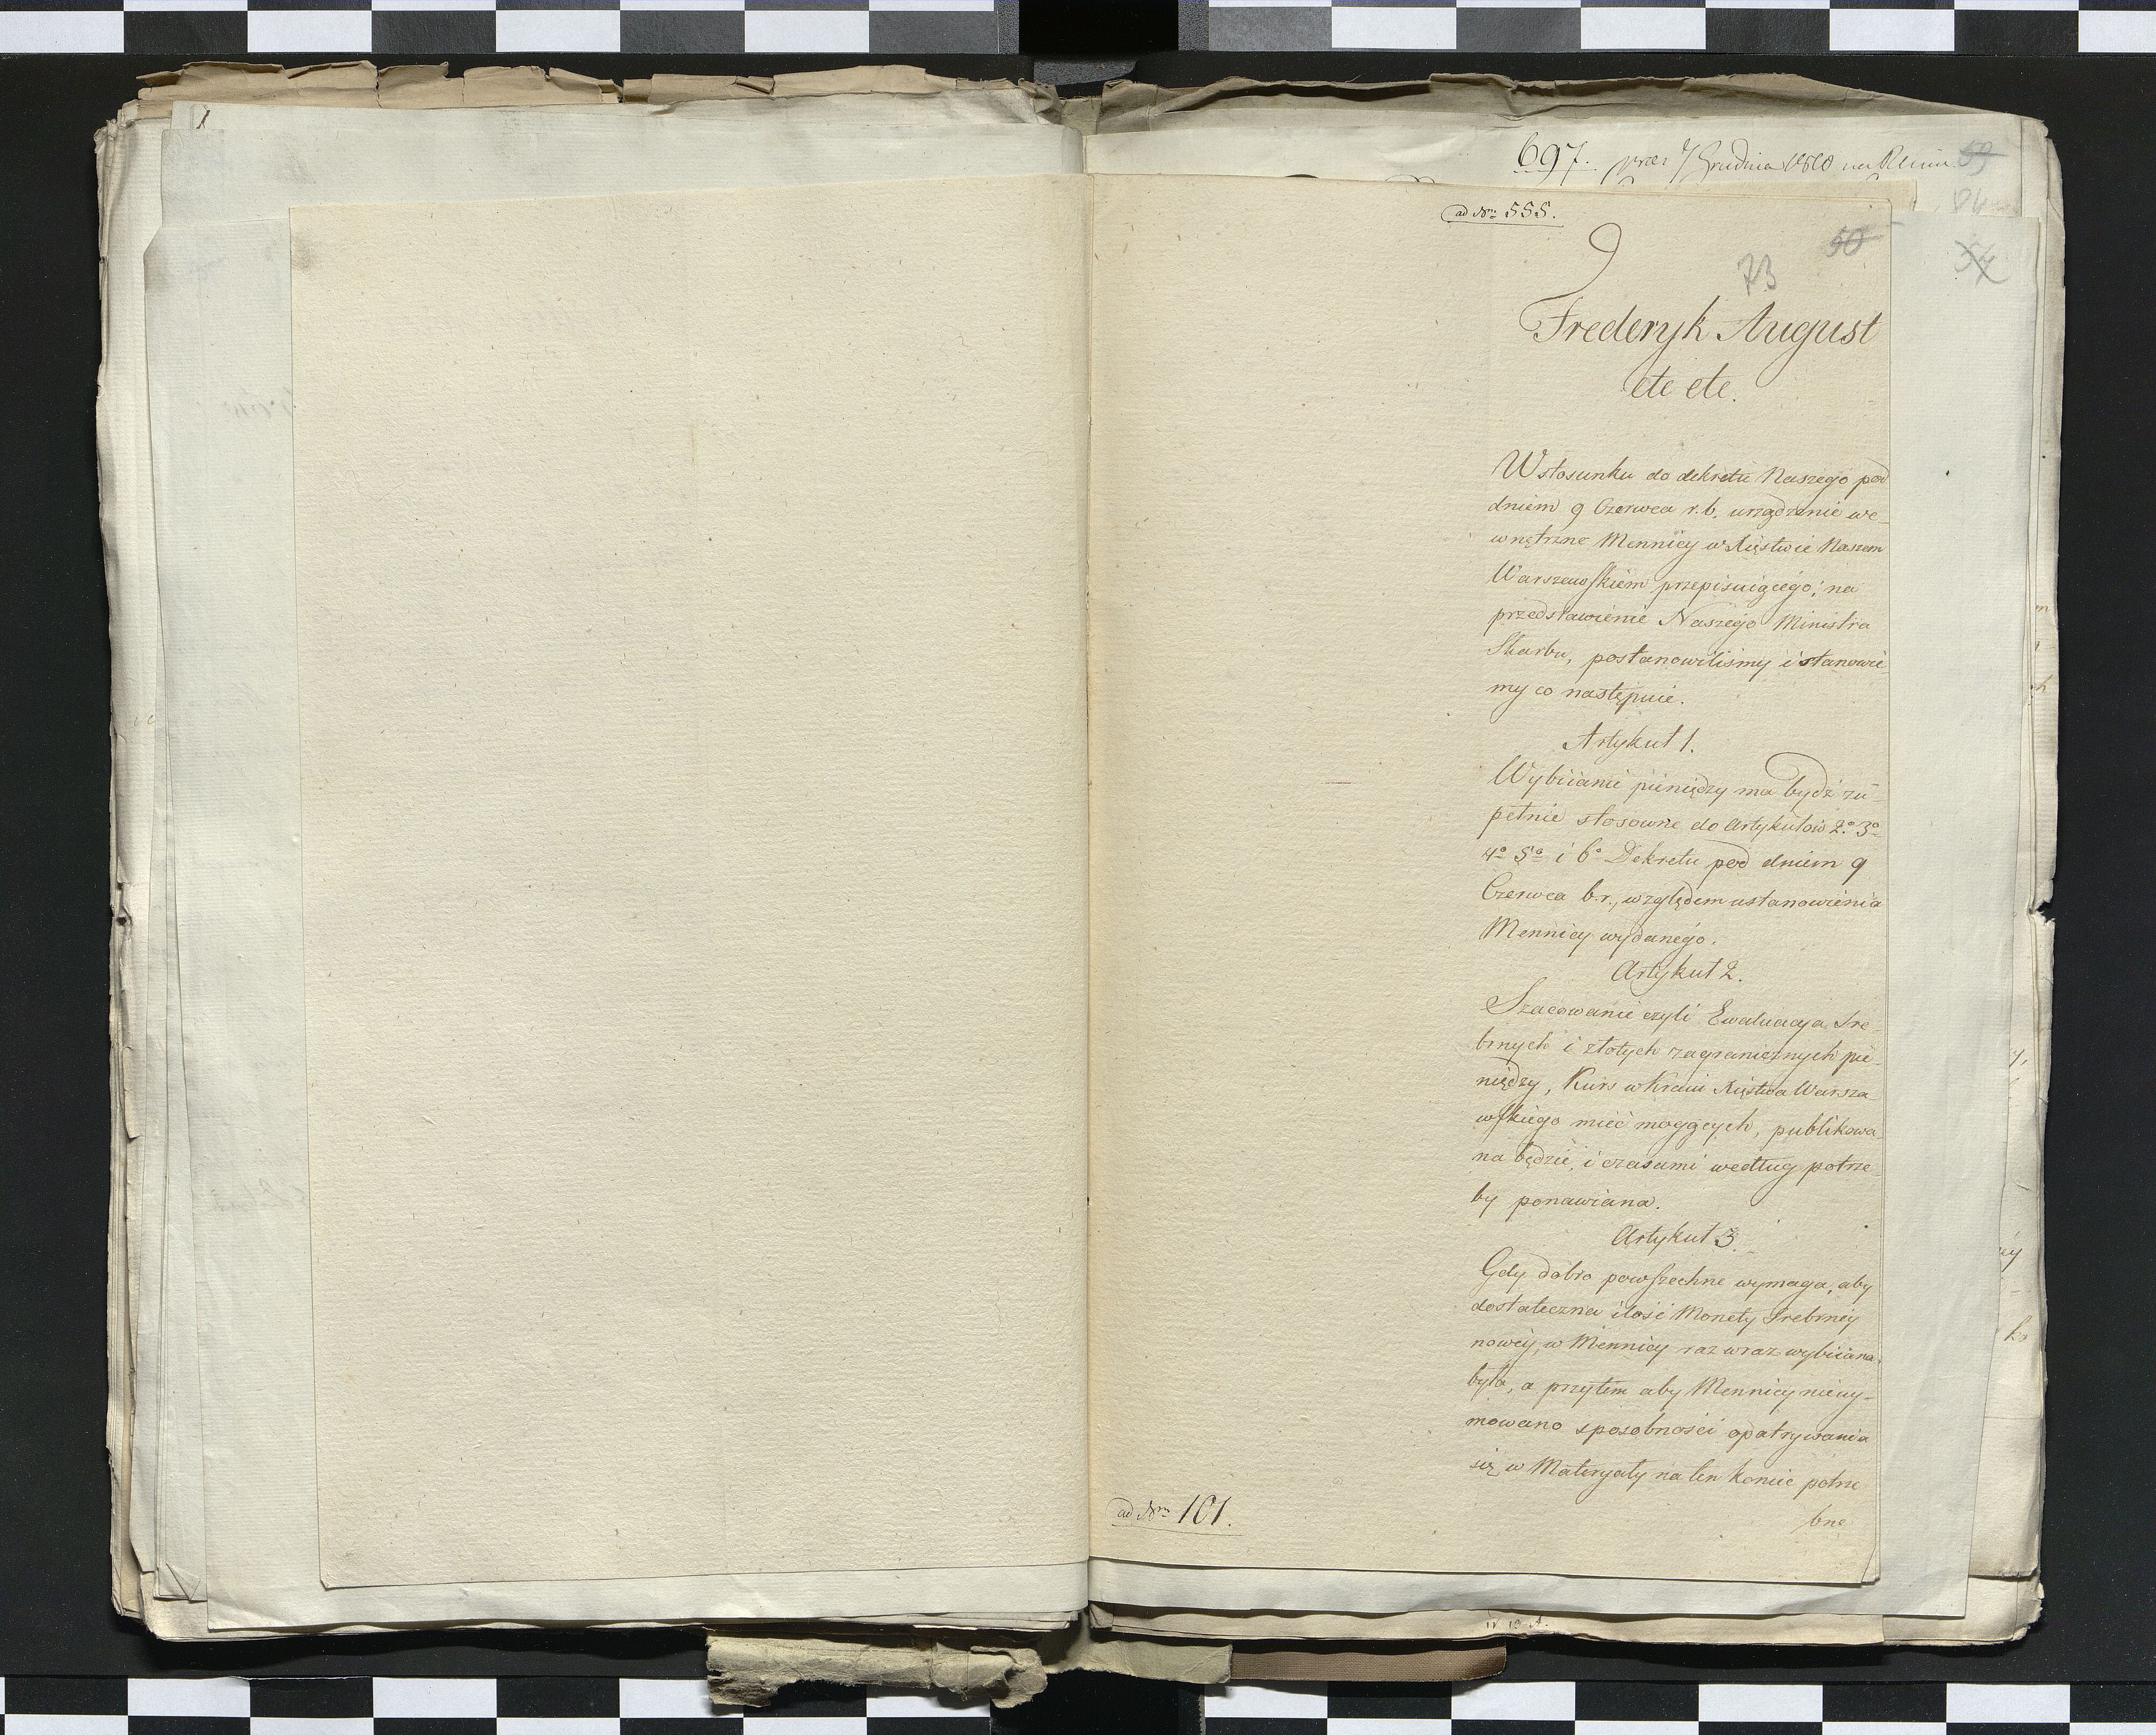 697. 7 Grudnia 1810 na
59
84
54
ad Nrm 555.
50
73
Frederyk August
etc etc.
W stosunku do dekretu Naszego pod
dniem 9 Czerwca r. b. urządzenie we-
wnętrzne Mennicy w Xięstwie Naszem
Warszewskiem przepisuiącego; na
przedstawienie Naszego Ministra
Skarbu, postanowiliśmy i stanowie-
my co następuie.
Artykuł 1.
Wybiianie pieniędzy ma bydź zu-
pełnie stosowne do Artykułow 2o 3o
4o 5o i 6o Dekretu pod dniem 9
Czerwca b. r., względem ustanowienia
Mennicy wydanego.
Artykuł 2.
Szacowanie czyli Ewaluacya Sre-
brnych i złotych zagranicznych pie-
niędzy, Kurs w Kraiu Xięstwa Warsza
wskiego mieć mogących, publikowa-
na będzie, i czasami według potrze-
by ponawiana.
Artykuł 3.
Gdy dobro powszechne wymaga, aby
dostateczna ilość Monety Srebrney
nowey, w Mennicy raz wraz wybiiana
była, a przytem aby Mennicy nieuy-
mowano sposobności opatrywania
się w Materyały na ten koniec potrze
bne
ad Nrm 101.